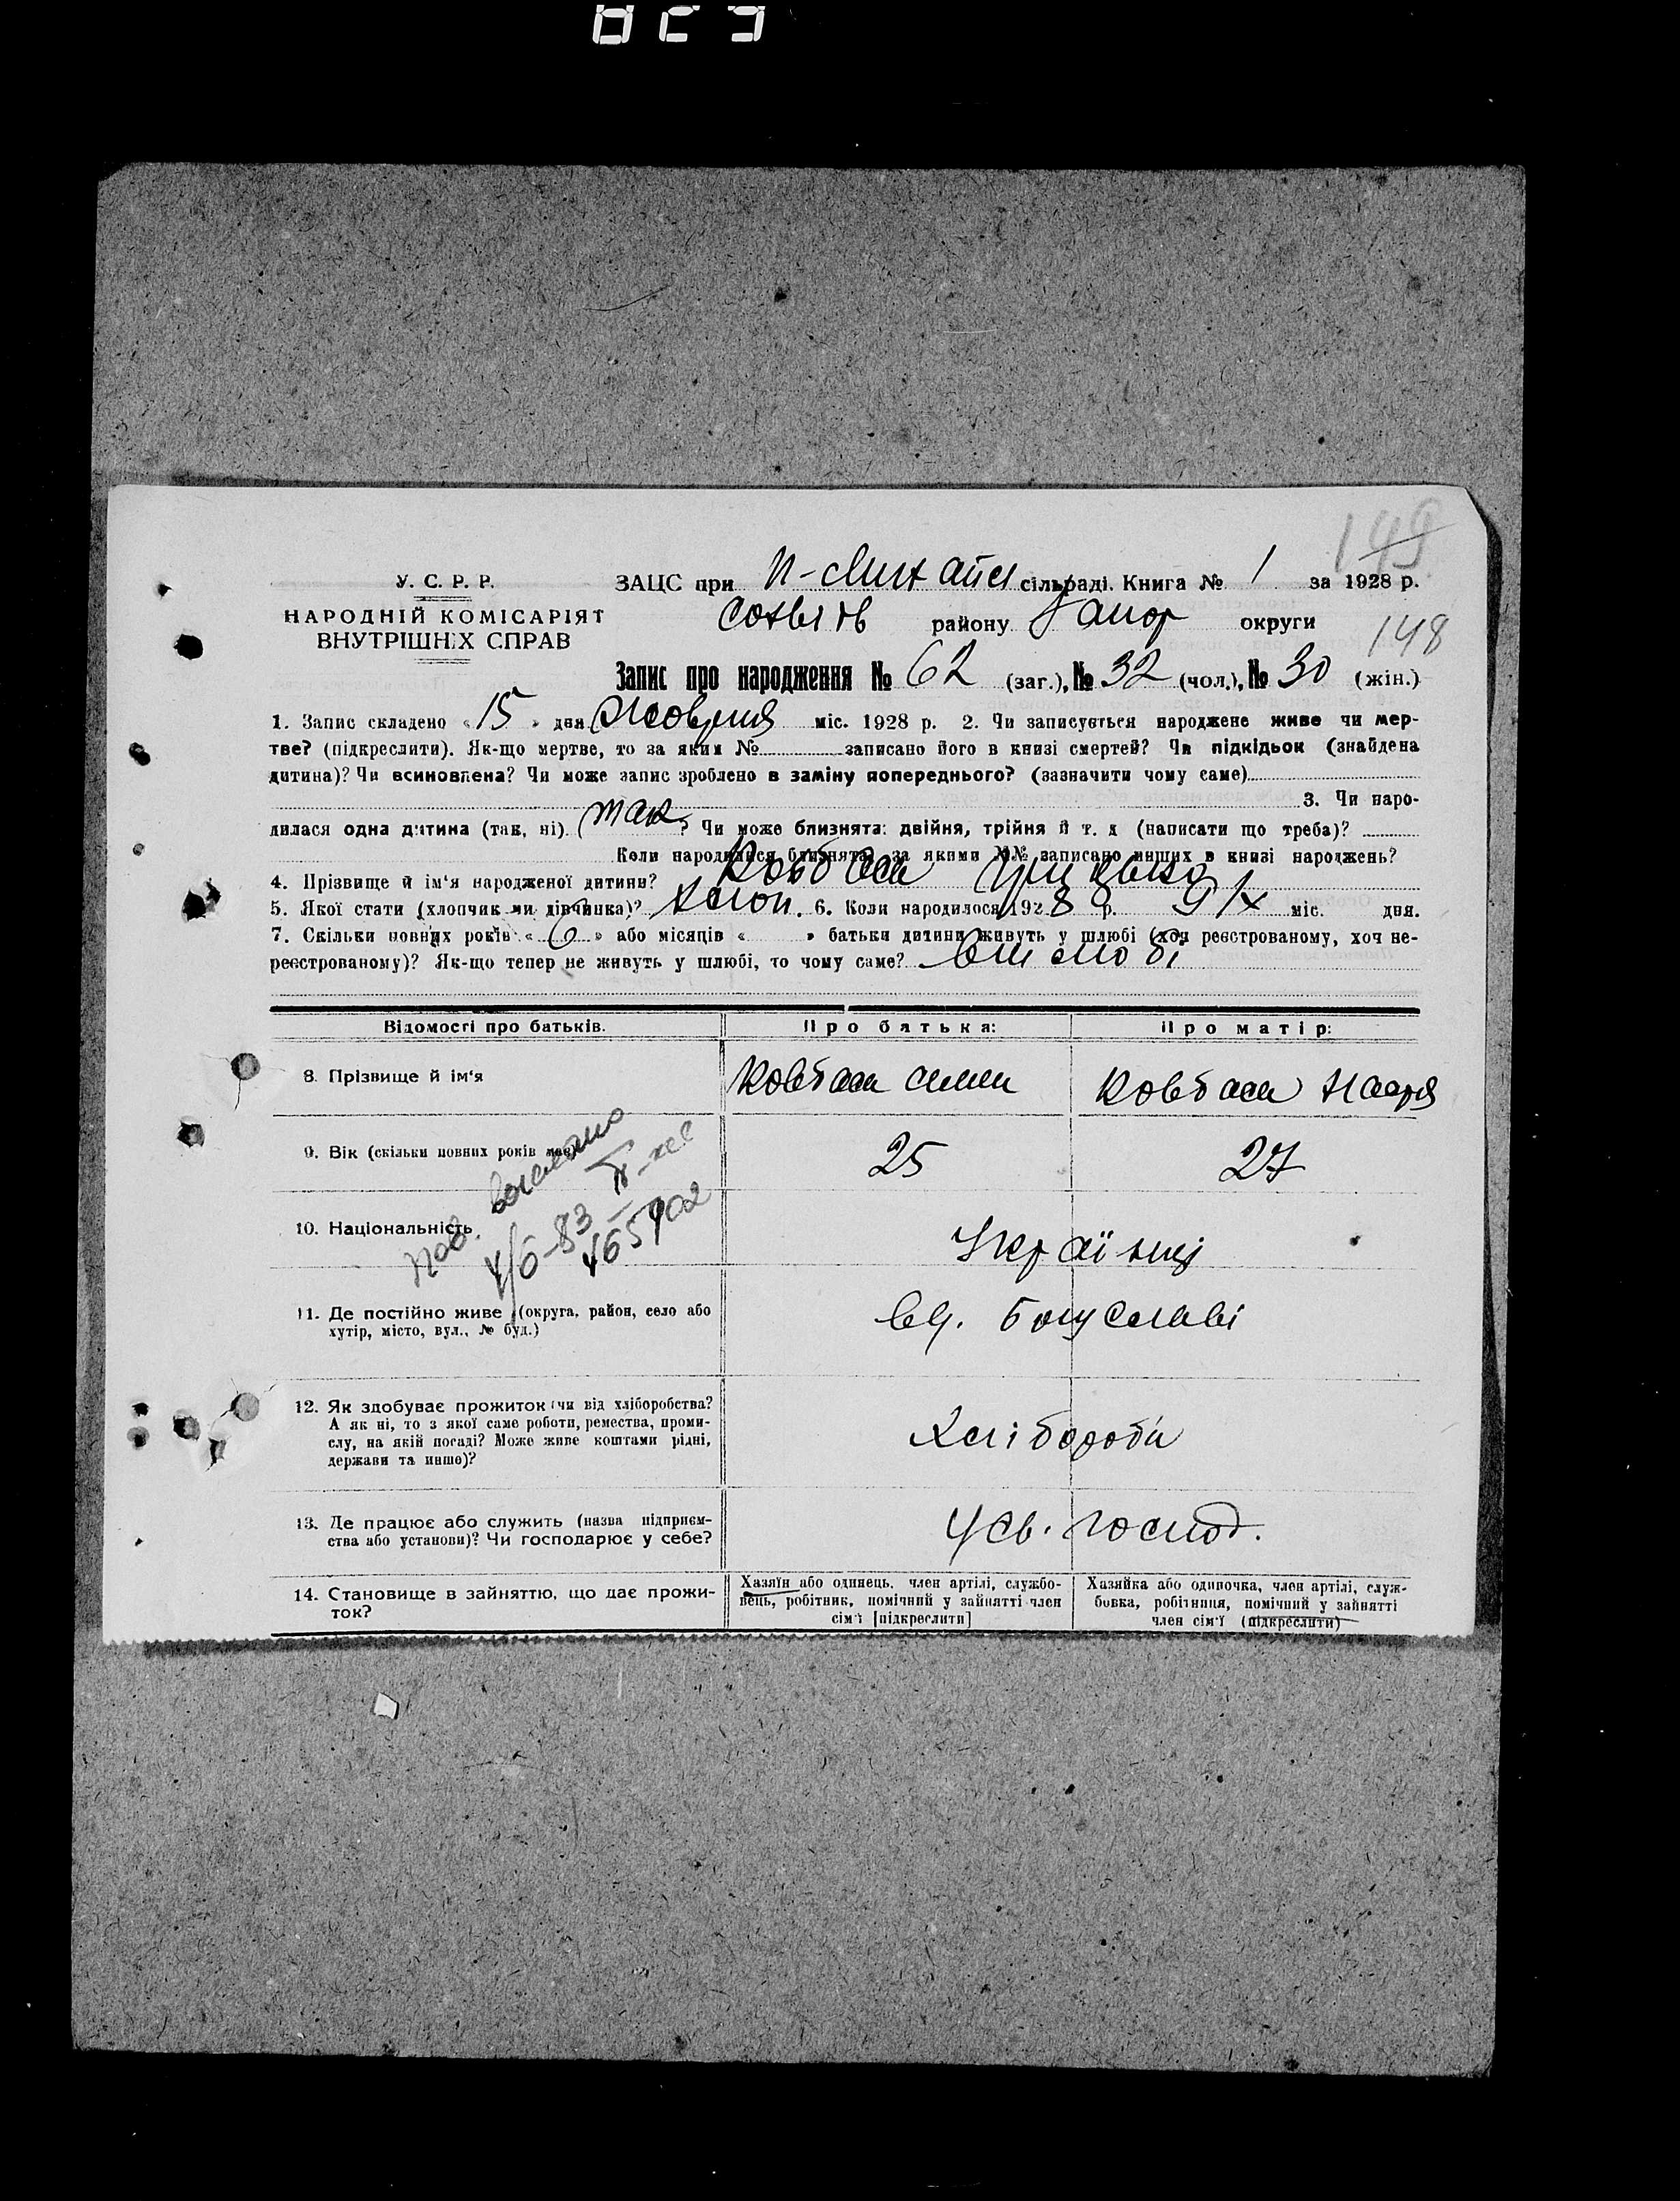 149
У. С. Р. Р.
НАРОДНІЙ КОМІСАРІЯТ
ВНУТРІШНІХ СПРАВ
ЗАЦС при сільраді. Книга № 1 за 1928 р.
району Запор округи
148
Запис про народження № 62 (заг.), № 32 (чол.), № 30 (жін.)
1. Запис складено «15» дня Жовтня міс. 1928 р. 2. Чи записується народжене живе чи мер-
тве? (підкреслити). Як-що мертве, то за яким № записано його в книзі смертей? Чи підкідьок (знайдена
дитина)? Чи всиновлена? Чи може запис зроблено в заміну попереднього? (зазначити чому саме)
3. Чи наро-
дилася одна дитина (так, ні) так? Чи може близнята: двійня, трійня й т. д (написати що треба)?
Коли народилися близнята, за якими №№ записано инших в книзі народжень?
4. Прізвище й ім'я народженої дитини? Ковбаса
5. Якої стати (хлопчик чи дівчинка)? хлоп. 6. Коли народилося 1928 р. 9/X міс. дня.
7. Скільки повних років «6» або місяців « » батьки дитини живуть у шлюбі (хоч реєстрованому, хоч не-
реєстрованому)? Як-що тепер не живуть у шлюбі, то чому саме? в шлюбі
Відомості про батьків.
Про батька:
Про матір:
8. Прізвище й ім'я
Ковбаса Семен
Ковбаса
9. Вік (скільки повних років має)
25
27
10. Національність
Українці
11. Де постійно живе (округа, район, село або
хутір, місто, вул., № буд.)
12. Як здобуває прожиток (чи від хліборобства?
А як ні, то з якої саме роботи, ремества, проми-
слу, на якій посаді? Може живе коштами рідні,
держави та инше)?
Хлібороби
13. Де працює або служить (назва підприєм-
ства або установи)? Чи господарює у себе?
У св. господ.
14. Становище в зайняттю, що дає прожи-
ток?
Хазяїн або одинець, член артілі, службо-
вець, робітник, помічний у зайнятті член
сім'ї [підкреслити]
Хазяйка або одиночка, член артілі, служ-
бовка, робітниця, помічний у зайнятті
член сім'ї (підкреслити)